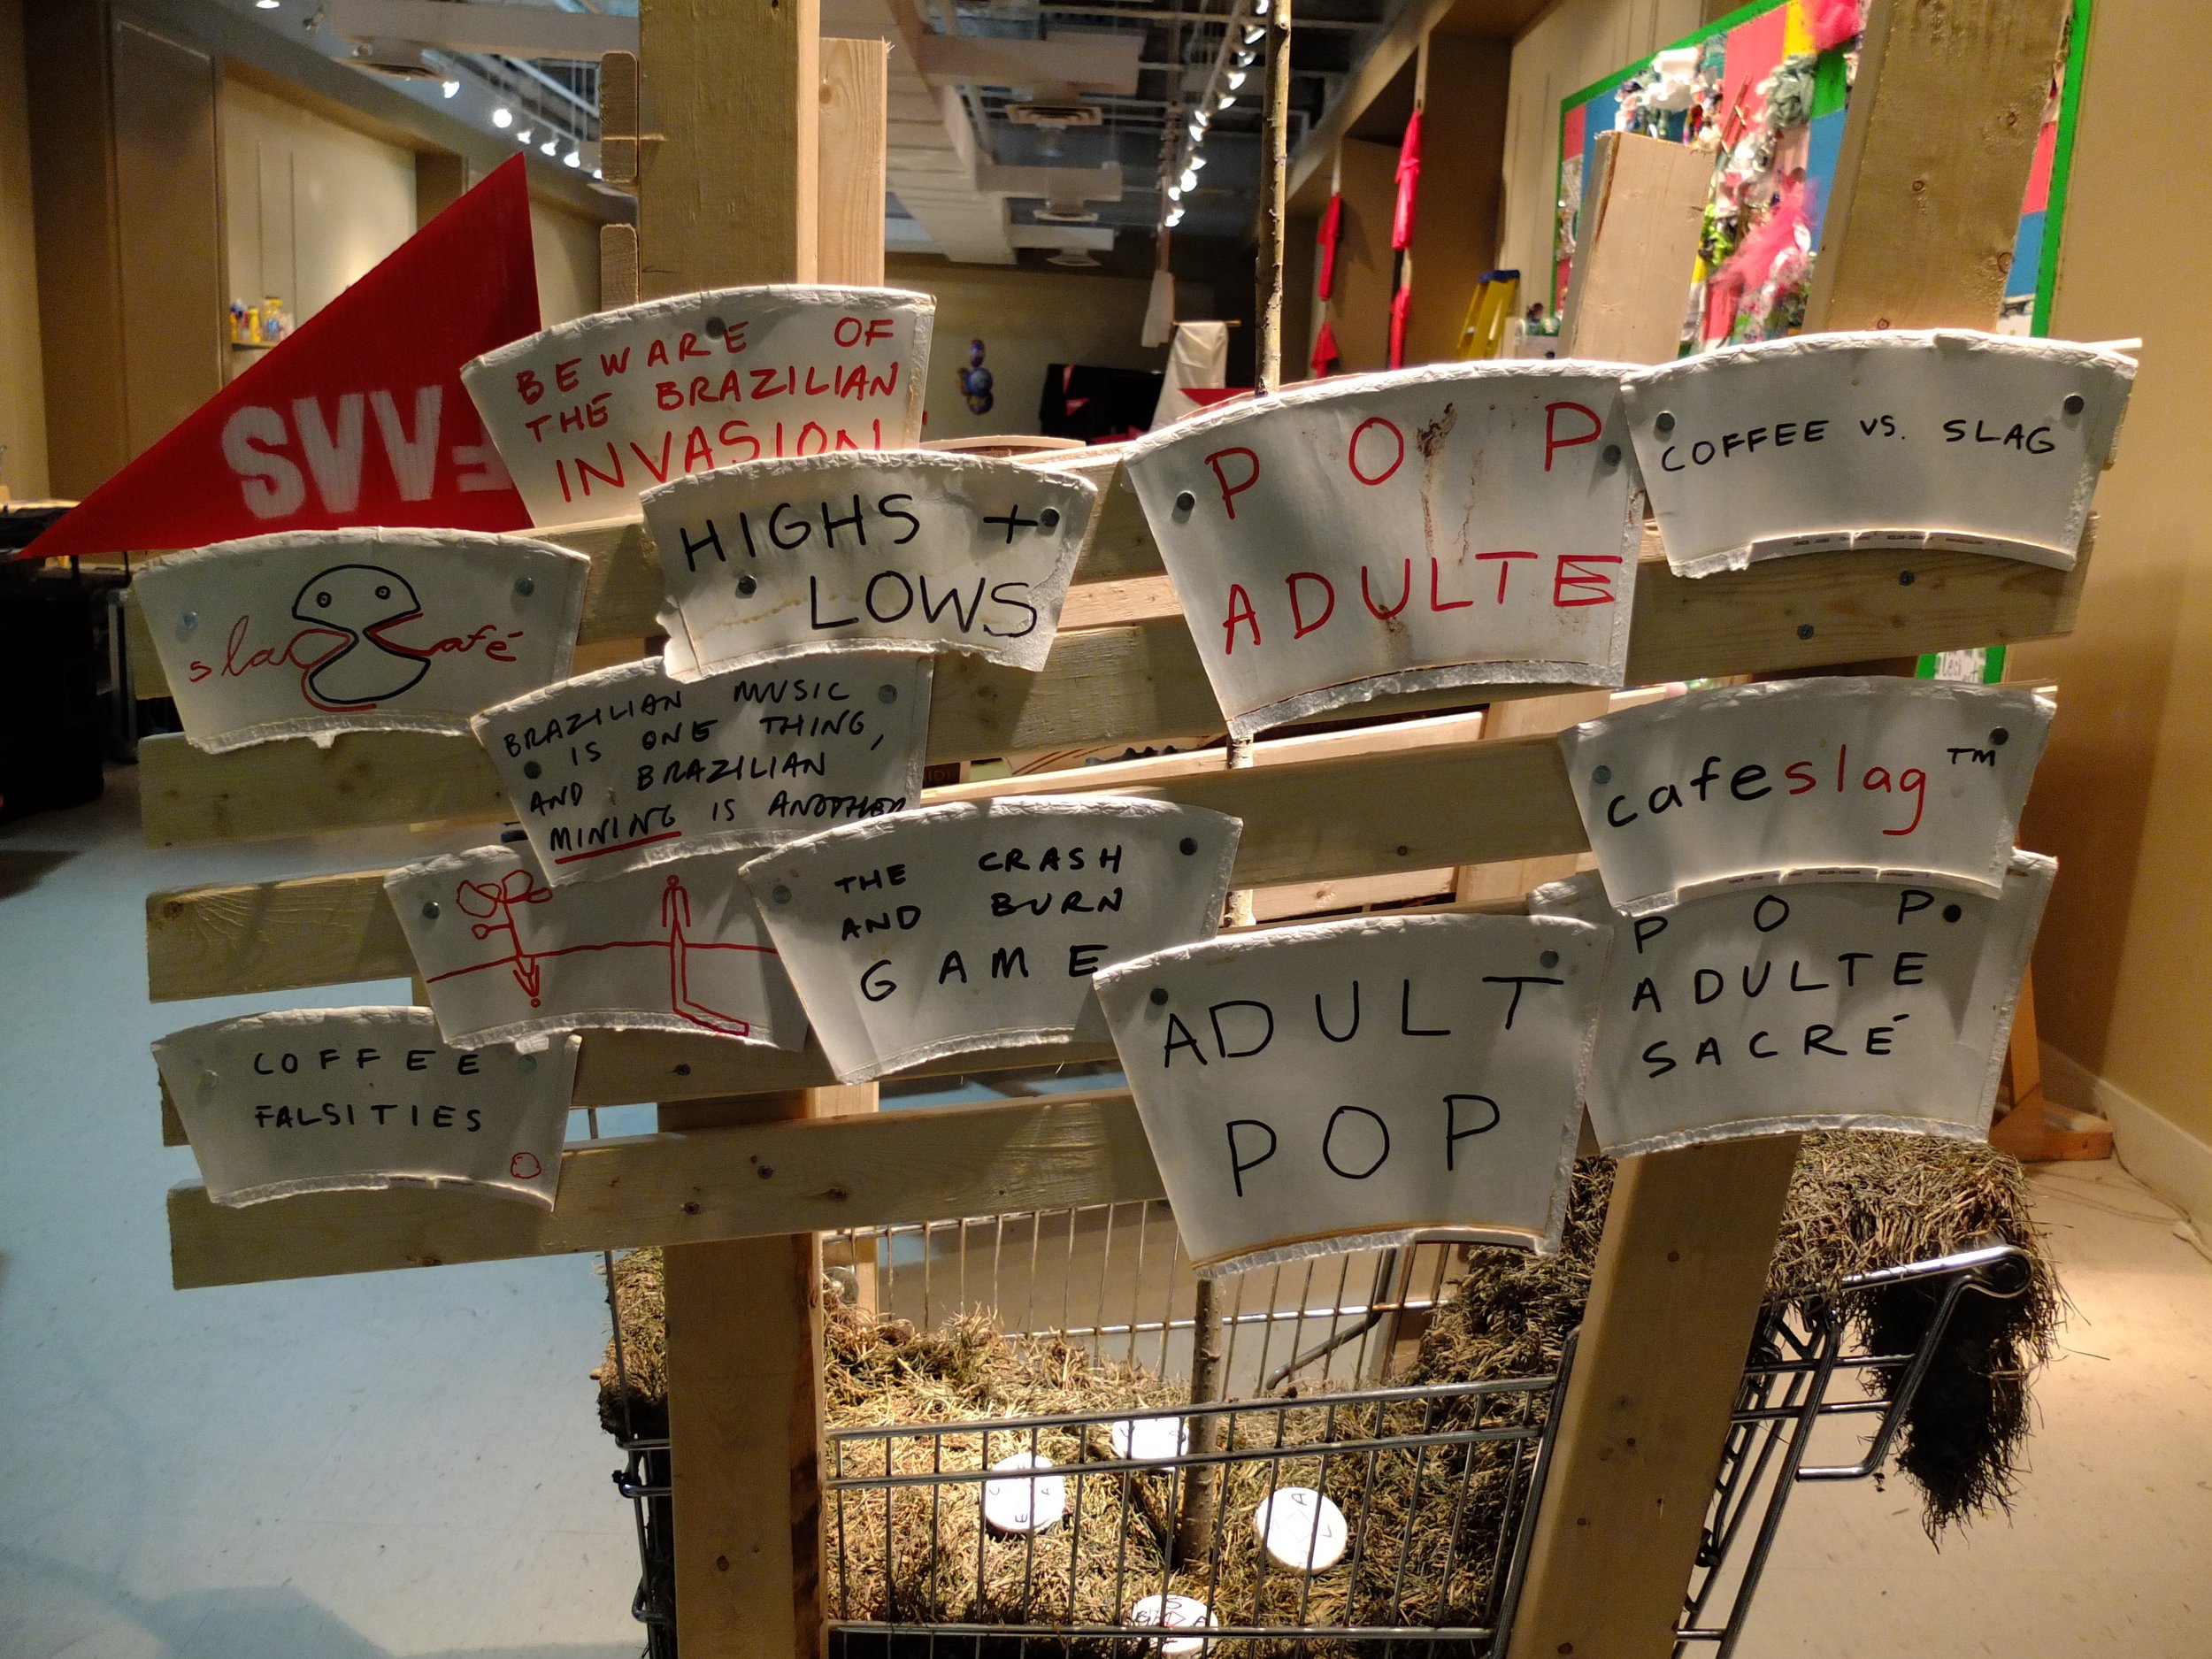 FAAS
BEWARE OF
THE BRAZILIAN
INVASION
HIGHS +
LOWS
POP
ADULTE
COFFEE VS. SLAG
slag café
BRAZILIAN MUSIC
IS ONE THING,
AND BRAZILIAN
MINING IS ANOTHER
cafeslag™
THE CRASH
AND BURN
GAME
ADULT
POP
POP
ADULTE
SACRÉ
COFFEE
FALSITIES